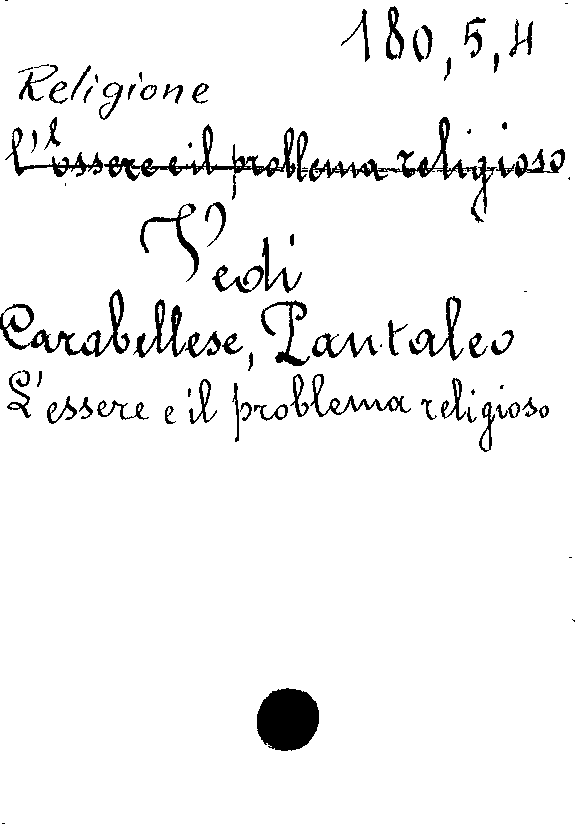 180,5,4
Religione
l'essere e il problema religioso.
Vedi
Carabellese, Pantaleo
L'essere e il problema religioso